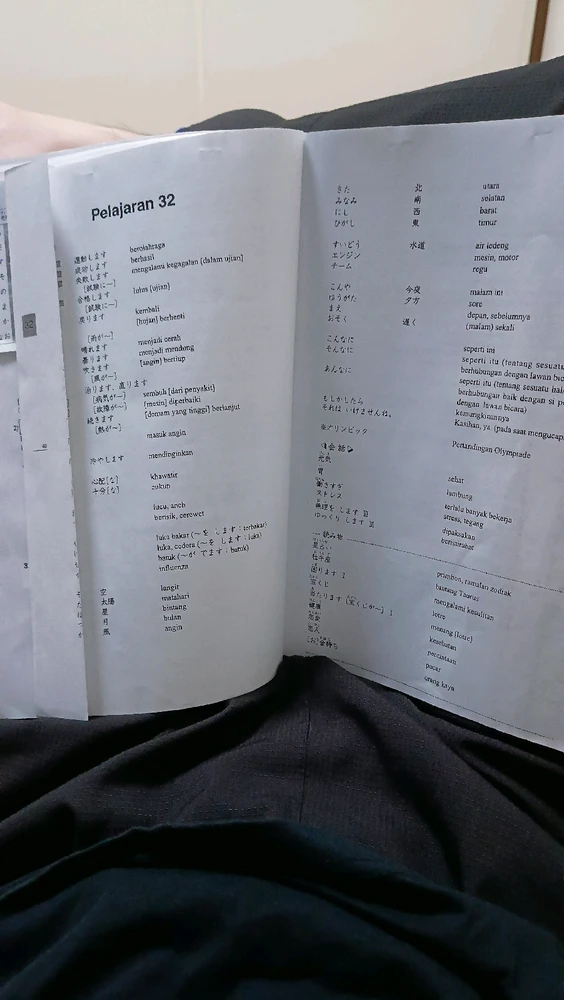 Pelajaran 32
運動します berolahraga
成功します berhasil
失敗します mengalami kegagalan [dalam ujian]
[試験に〜]
合格します lulus [ujian]
[試験に〜]
戻ります kembali
[hujan] berhenti
[雨が〜]
晴れます menjadi cerah
曇ります menjadi mendung
吹きます [angin] bertiup
[風が〜]
治ります、直ります
[病気が〜] sembuh [dari penyakit]
[故障が〜] [mesin] diperbaiki
続きます [demam yang tinggi] berlanjut
[熱が〜]
masuk angin
冷やします mendinginkan
心配[な] khawatir
十分[な] cukup
lucu, aneh
berisik, cerewet
luka bakar (〜を します:terbakar)
luka, cedera (〜を します:luka)
batuk (〜が でます:batuk)
influenza
空 langit
太陽 matahari
星 bintang
月 bulan
風 angin
きた 北 utara
みなみ 南 selatan
にし 西 barat
ひがし 東 timur
すいどう 水道 air ledeng
エンジン mesin, motor
チーム regu
こんや 今夜 malam ini
ゆうがた 夕方 sore
まえ depan, sebelumnya
おそく 遅く (malam) sekali
こんなに seperti ini
そんなに seperti itu (tentang
berhubungan dengan lawan
あんなに seperti itu (tentang sesuatu
berhubungan baik dengan si
dengan lawan bicara)
もしかしたら kemungkinannya
それは いけませんね。 Kasihan, ya. (pada saat
※オリンピック Pertandingan Olympiade
会話
元気 sehat
胃 lambung
働きすぎ terlalu banyak bekerja
ストレス stress, tegang
無理を します Ⅲ dipaksakan
ゆっくり します Ⅲ beristirahat
読み物
星占い primbon, ramalan zodiak
牡牛座 bintang Taurus
困ります Ⅰ mengalami kesulitan
宝くじ lotre
当たります [宝くじが〜] Ⅰ menang [lotre]
健康 kesehatan
恋愛 percintaan
恋人 pacar
[お]金持ち orang kaya